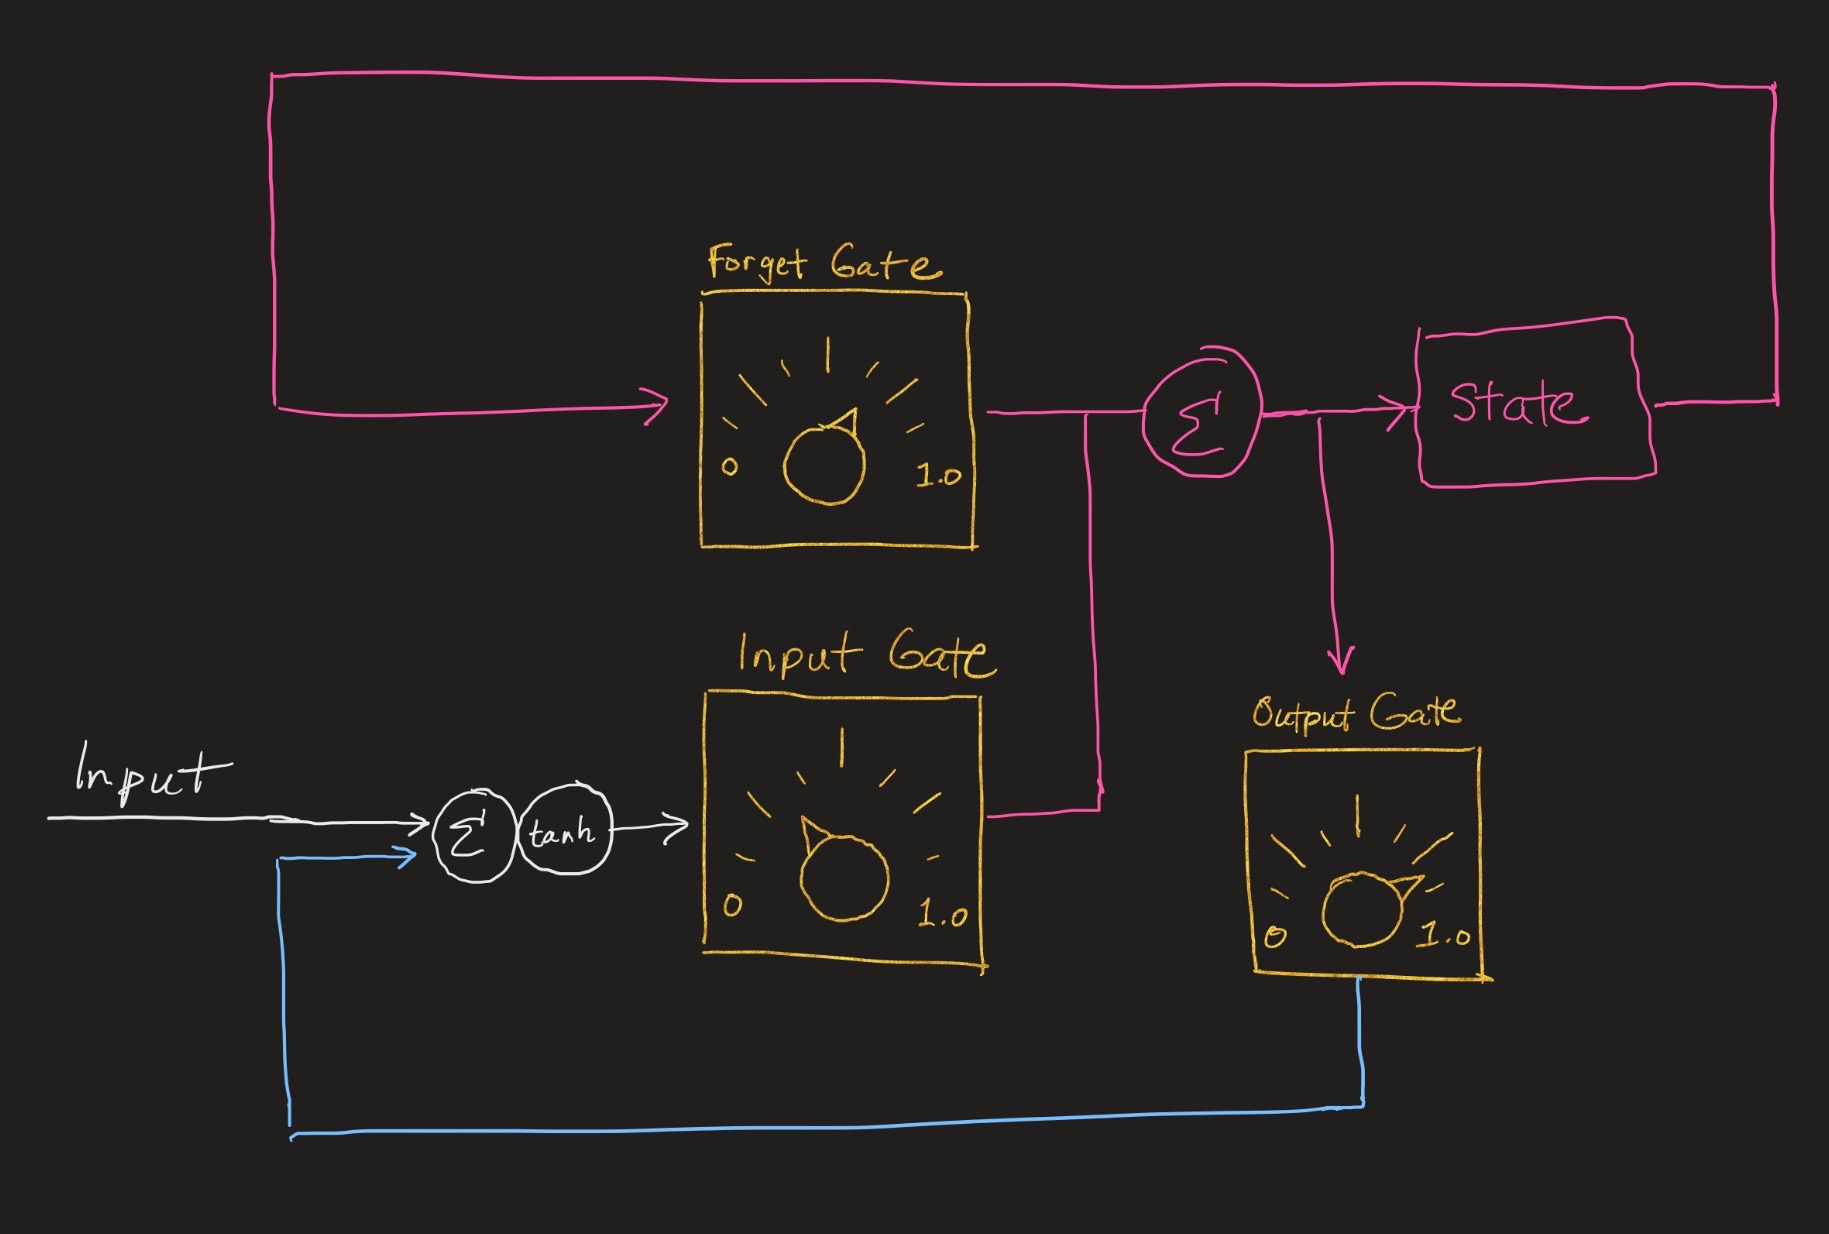 Forget Gate
0
1.0
Σ
State
Input Gate
0
1.0
Input
Σ
tanh
Output Gate
0
1.0